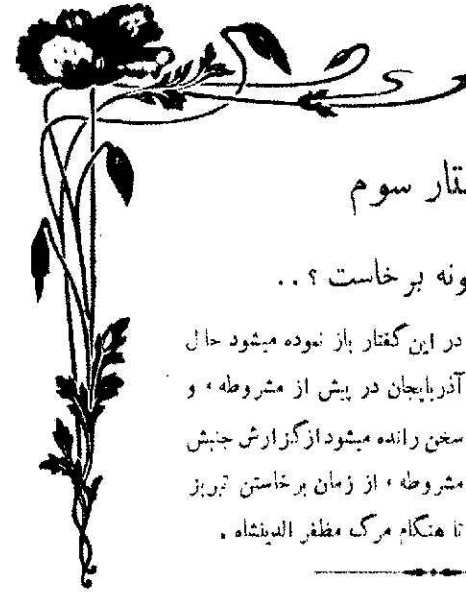 تار سوم
ونه برخاست ؟ . .
در این گفتار باز نموده میشود حال
آذربایجان در پیش از مشروطه ، و
سخن رانده میشود از گزارش جنبش
مشروطه ، از زمان برخاستن تبریز
تا هنگام مرگ مظفر الدینشاه .